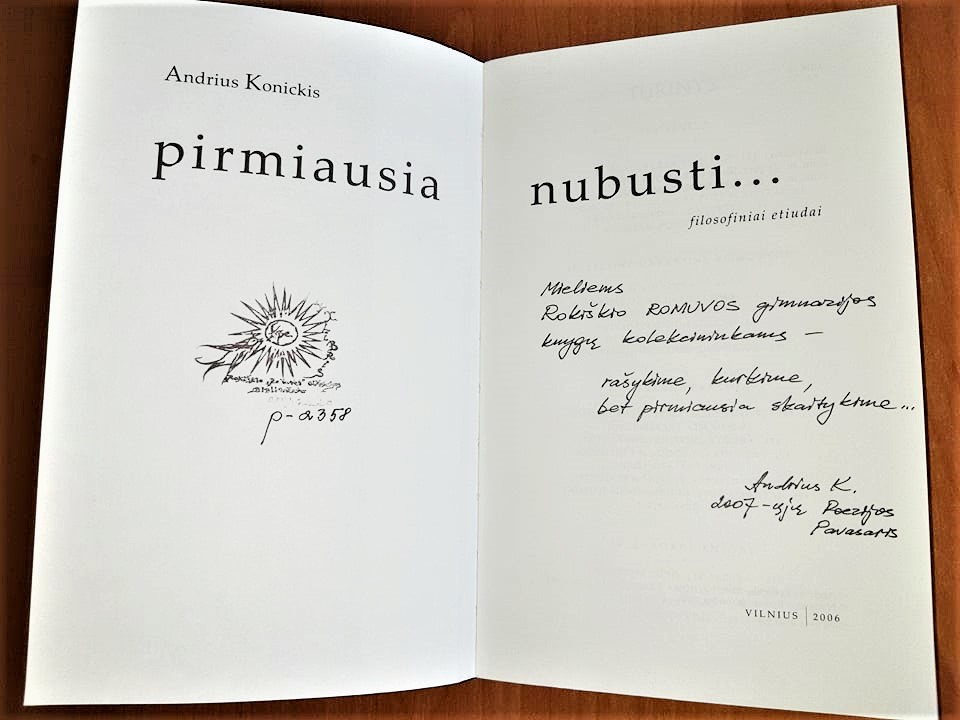 Andrius Konickis
pirmiausia nubusti...
filosofiniai etiudai
p-2358
Mieliems
Rokiškio ROMUVOS gimnazijos
knygų kolekcininkams –
rašykime, kurkime,
bet pirmiausia skaitykime...
Andrius K.
2007-ųjų Poezijos
Pavasaris
VILNIUS | 2006